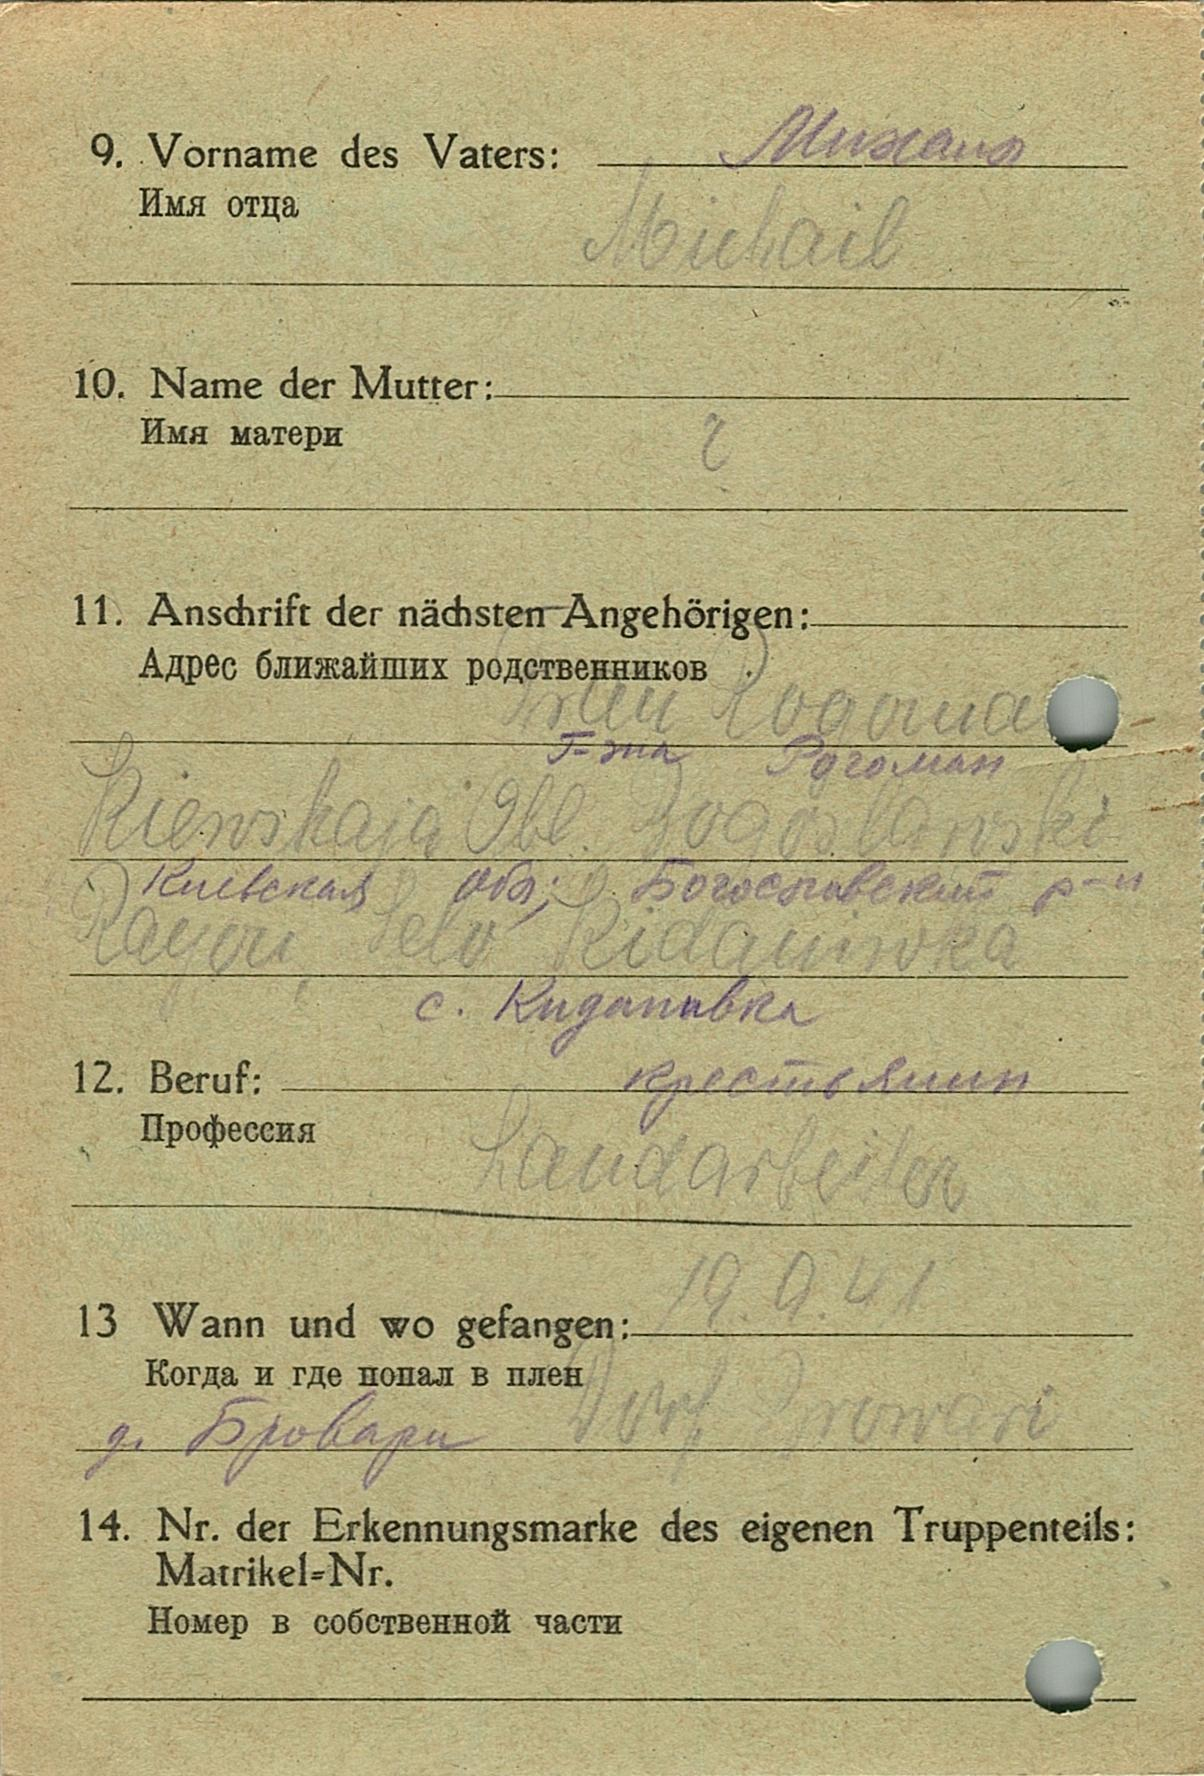 9. Vorname des Vaters: Михаил
Имя отца
Michail
10. Name der Mutter:
Имя матери
?
11. Anschrift der nächsten Angehörigen:
Адрес ближайших родственников
Rogoma
Г-жа Рогоман
Kiewskaja Obl. Bogoslawski
Киевская обл; Богославский р-н
Rayon, Selo Kidaniwka
с. Кидановка
12. Beruf: крестьянин
Профессия
Landarbeiter
19.9.41
13 Wann und wo gefangen:
Когда и где попал в плен
д. Бровари Dorf Browari
14. Nr. der Erkennungsmarke des eigenen Truppenteils:
Matrikel-Nr.
Номер в собственной части